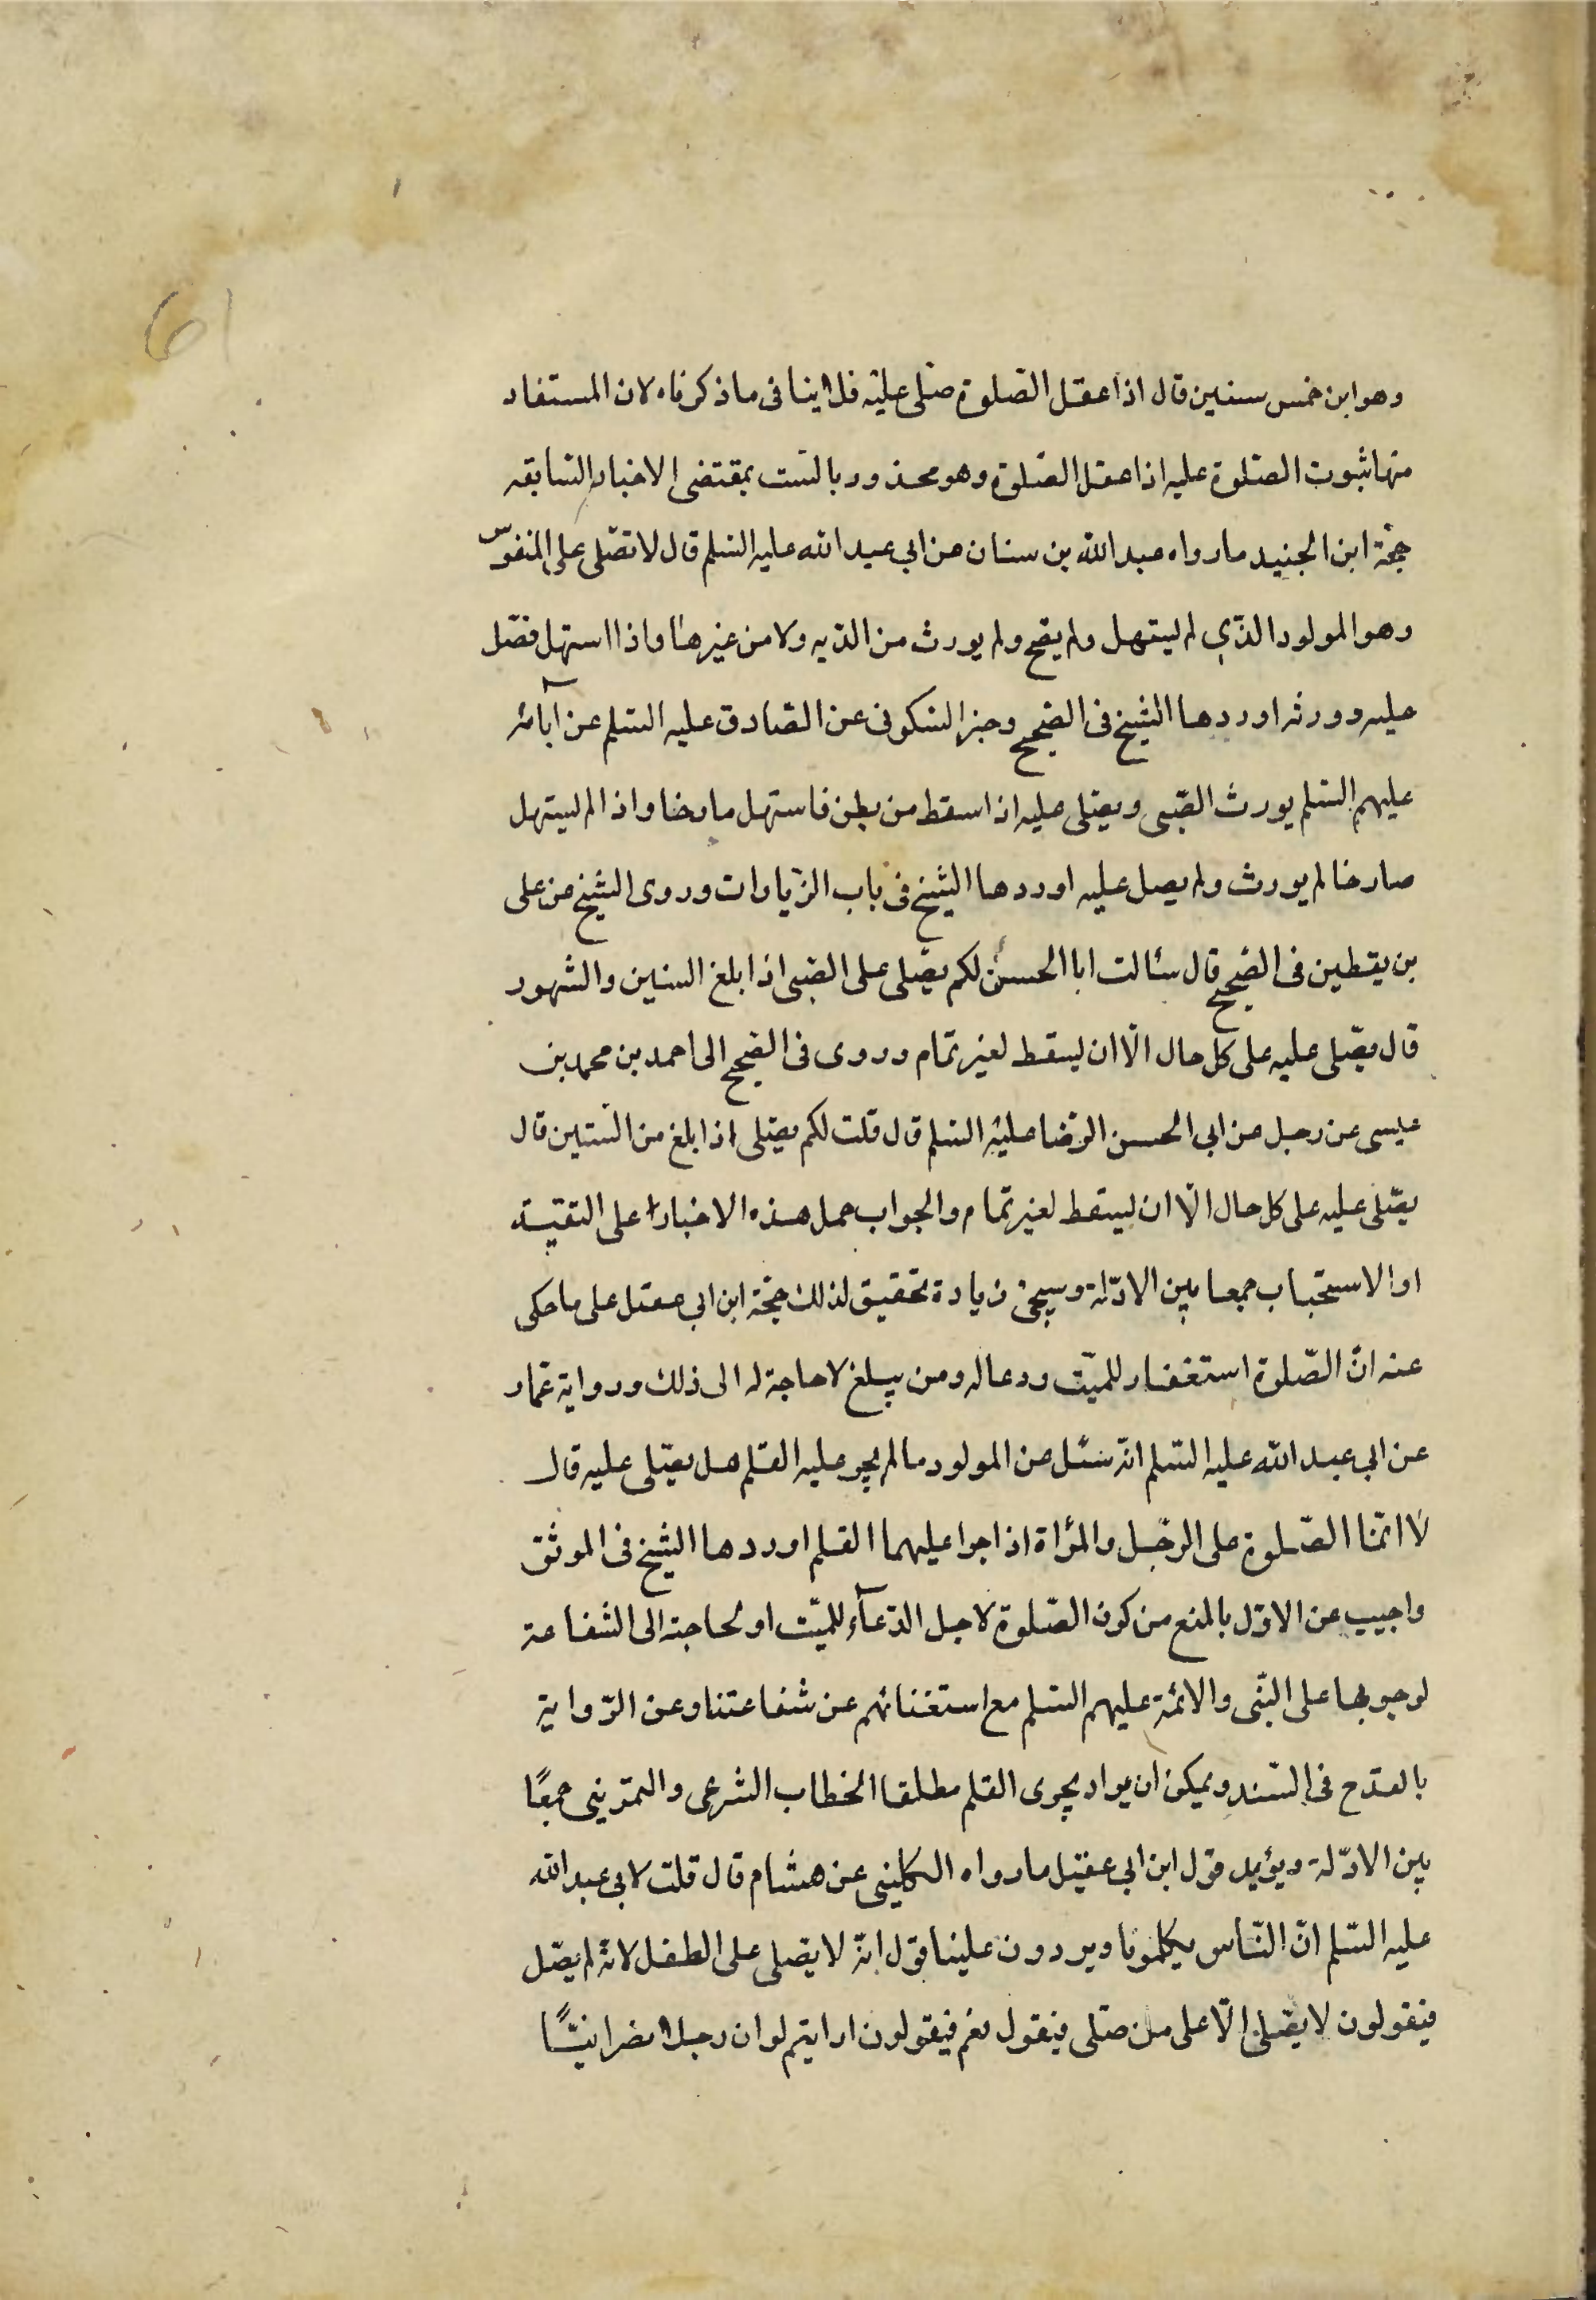 61
وهو ابن خمس سنين قال اذا عقل الصّلوة صلّى عليه فلا ينافى ما ذكرناه لان المستفاد
منها ثبوت الصّلوة عليه اذا عقل الصّلوة وهو محذور بالسّت بمقتضى الاخبار السّابقه
حجّة ابن الجنيد ما رواه عبد الله بن سنان عن ابي عبد الله عليه السّلم قال لا تصّلى على المنفوس
وهو المولود الذّي لم ليتهل ولم يصح ولم يورث من الدّيه ولا من غيرها واذا استهل فصّل
عليه وورثه اوردها الشّيخ فى الصّحيح وخبر السّكونى عن الصّادق عليه السّلم عن آبائه
عليهم السّلم يورث الصّبى ويصّلى عليه اذا سقط من بطن فاستهل صارخا واذا لم ليتهل
صارخا لم يورث ولم يصل عليه اوردها الشّيخ فى باب الزّيادات وروى الشّيخ عن على
بن يقطين فى الصّحيح قال سئالت ابا الحسنؑ لكم يصّلى على الصّبى اذا بلغ السنين والشهور
قال يصّلى عليه على كل حال الّا ان ليسقط لغير تمام وروى فى الصّحيح الى احمد بن محمد بن
عليسى عن رجل عن ابي الحسن الرّضا عليه السّلم قال قلت لكم يصّلى اذا بلغ من السّنين قال
يصّلى عليه على كل حال الّا ان ليسقط لغير تمام والجواب حمل هذه الاخبار على التقيّة
او الاستحباب جمعا بين الادّلة وسيجئ زيادة تحقيق لذلك حجّة ابن ابي عقل على ما حكى
عنه انّ الصّلوة استغفار للميّت ودعا له ومن يبلغ لا حاجة له الى ذلك ورواية عمّار
عن ابي عبد الله عليه السّلم انّه سئل عن المولود ما لم يجر عليه القلم هل يصّلى عليه قال
لا انّما الصّلوة على الرّجل والمرأة اذا جرا عليهما القلم اوردها الشّيخ فى الموثق
واجيب عن الاوّل بالمنع من كون الصّلوة لاجل الدّعآء للميّت او لحاجة الى الشفاعة
لوجوبها على النّبى والائمّة عليهم السّلم مع استغنائهم عن شفاعتنا وعن الرّواية
بالقدح فى السّند ويمكن ان يراد بجرى القلم مطلقا الخطاب الشرعى والتمرّينى جمعًا
بين الادّلة ويؤيد قول ابن ابي عقيل ما رواه الكلينى عن هشام قال قلت لابي عبد الله
عليه السّلم انّ النّاس يكلمونا ويردون علينا قول انّه لا يصلى على الطفل لانّه لم يصّل
فيقولون لا يصّلى الّا على من صّلى فيقول نعم فيقولون ارايتم لو ان رجلا نصرانيّا